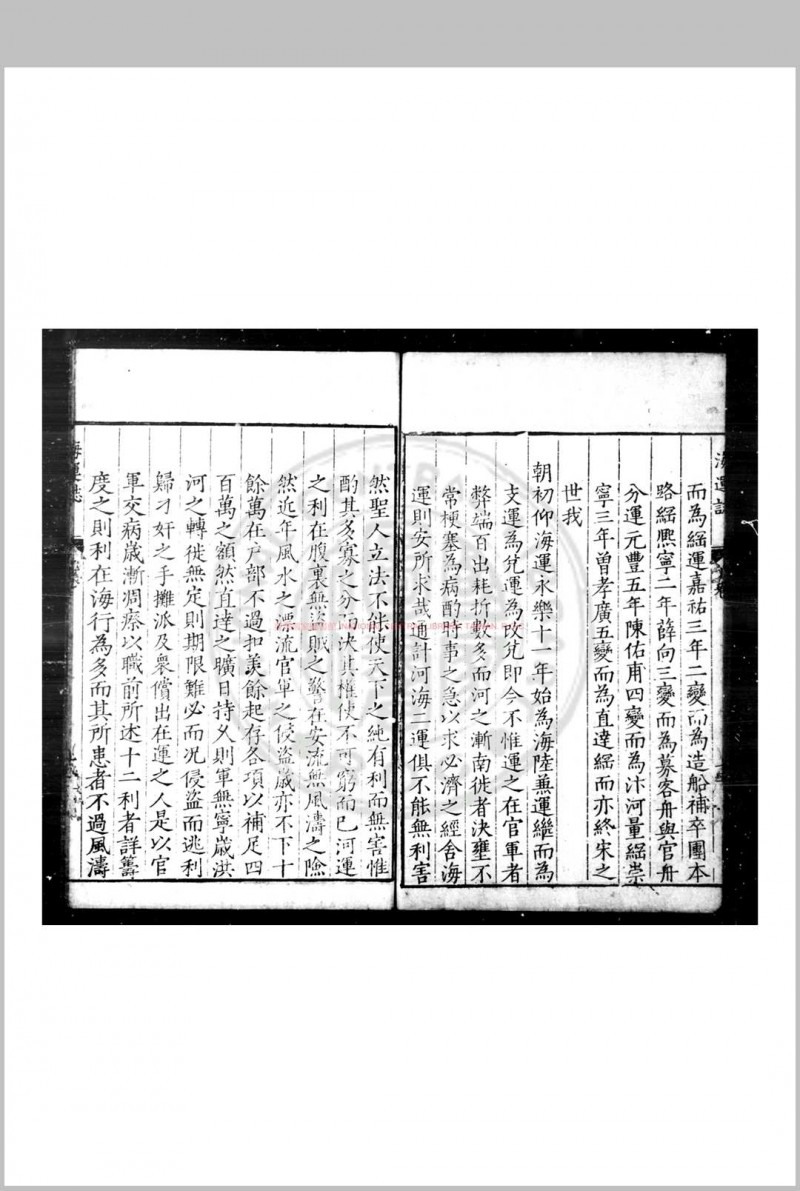 海運誌
而為綱運嘉祐三年二變而為造船補卒團本
路綱熙寧二年薛向三變而為募客舟與官舟
分運元豐五年陳佑甫四變而為汴河量綱崇
寧三年曾孝廣五變而為直達綱而亦終宋之
世我
朝初仰海運永樂十一年始為海陸兼運繼而為
支運為兌運為改兌即今不惟運之在官軍者
弊端百出耗折數多而河之漸南徙者決壅不
常梗塞為病酌時事之急以求必濟之經舍海
運則安所求哉通計河海二運俱不能無利害
然聖人立法不能使天下之純有利而無害惟
酌其多寡之分而決其權使不可窮而已河運
之利在腹裏無盜賊之警在安流無風濤之險
然近年風水之漂流官軍之侵盜歲亦不下十
餘萬在户部不過扣羨餘起存各項以補足四
百萬之額然直達之曠日持久則軍無寧歲洪
河之轉徙無定則期限難必而况侵盜而逃利
歸刁奸之手攤派及衆償出在運之人是以官
軍交病歲漸凋瘵以職前所述十二利者詳籌
度之則利在海行為多而其所患者不過風濤
海運誌